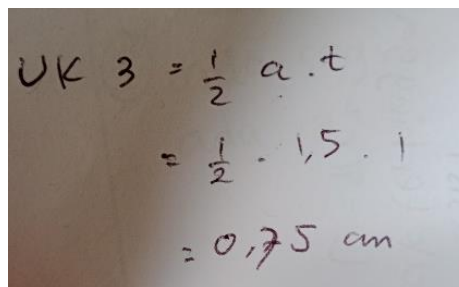 UK 3 = 1/2 a . t
= 1/2 . 1,5 . 1
= 0,75 cm